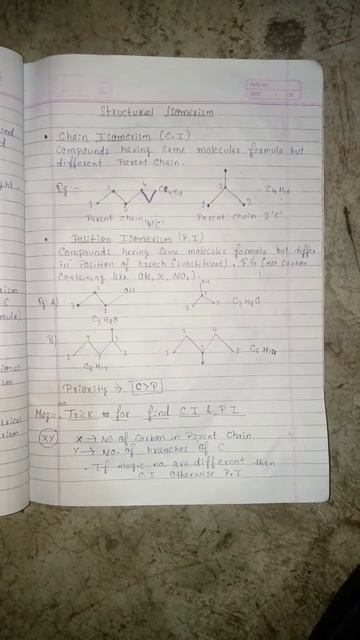 Structural Isomerism
• Chain Isomerism (C.I)
Compounds having same molecular formula but
different Parent chain.
Eg :-
1 2 3 4
C4H10
2
1 3
Parent chain '4' 'C'
Parent chain 3 'C'
• Position Isomerism (P.I)
Compounds having same molecules formula but differ
in position of branch (substituent). F.G (not carbon
containing like OH, X, NO2).
Eg. A)
OH
3 2 1
C3H8O
OH
C3H8O
B)
C6H14
C6H14
Priority → C>P
Magic no. Trick to for find C.I & P.I
XY
X → No. of Carbon in Parent Chain
Y → No. of branches of C
• If magic no. are different then
C.I otherwise P.I